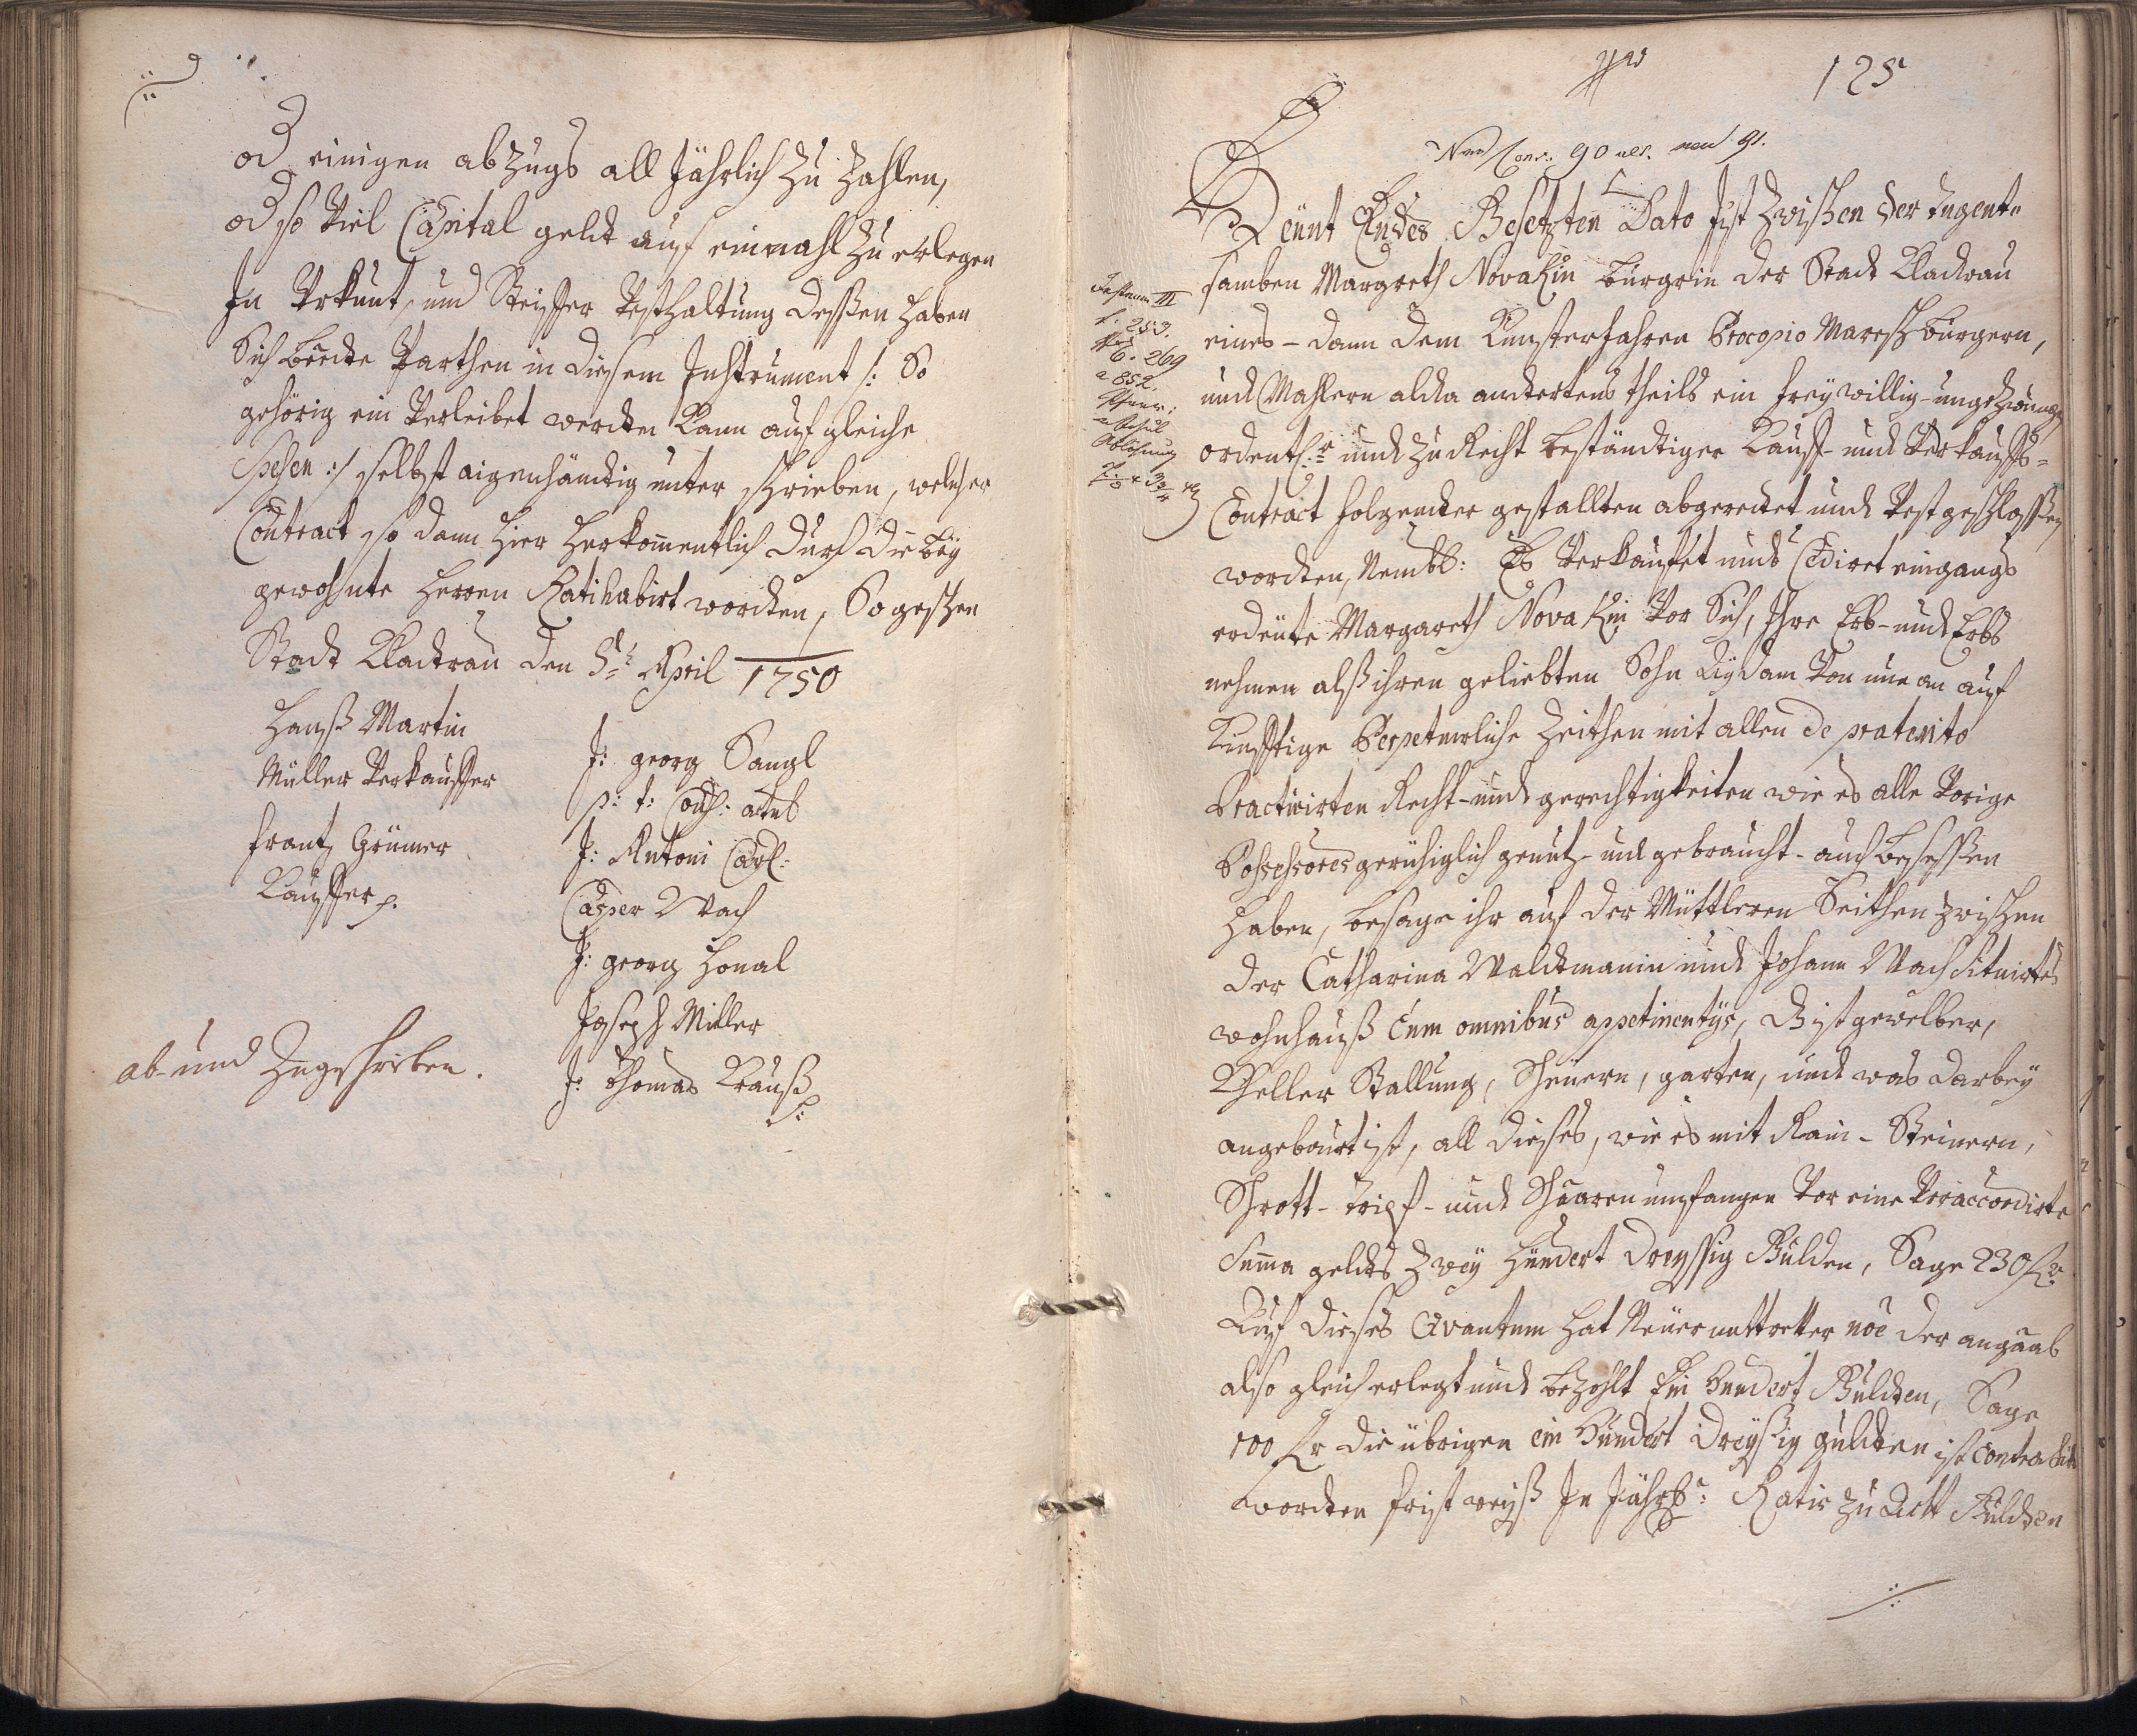 od einigen abzugs all Jährlich zu zahlen,
od so viel Capital geldt auf einmahl zu erlegen
In Urkunt, und Steiffer Vesthaltung dessen haben
Sich beede Parthen in diesem Instrument /: So
gehörig ein Verleibet werden kann auf gleiche
Spesen :/ selbst aigenhändig unter schrieben, welcher
Contract so dann hier herkomentlich durch die bey
gewohnte herren Ratihabirt worden, So geschen
Stadt Kladrau den April 1750
Hanß Martin
Müller Verkauffer
frantz Grümer
Kauffer
J: georg Sangl
p: t: Cons: actus
J: Antoni Carl:
Casper Wach
J: georg Honal
Joseph Miller
J: Thomas Krauß
ab- und Zugeschrieben.
125
Nro Cons: 90 neu 91.
Heünt Endes Besetzten Dato Ist zwischen der tugent-
samben Margreth Novakin burgrin der Stadt Kladrau
eines - dann dem Kunsterfahren Procopio Maresch burgern,
und Mahlern alda andertens theils ein freywillig-ungezwungen
ordentl: und zu Recht beständiger Kauff- und Verkauffs-
Contract folgender gestallten abgeredet und Vest geschlossen
worden, Nembl: Es Verkauffet und Cediret eingangs
erdeüte Margareth Novakin Vor Sich, Ihre Erb- und Erbs
nehmen alß ihren geliebten Sohn Von nun an auf
Kunfftige Perpetuirliche Zeithen mit allen de praterito
Practicirten Recht- und gerechtigkeiten wie es alle Vorige
Possessores geruhiglich genutz- und gebraucht- auch besessen
haben, besage ihr auf der Mittleren Seithen zwischen
der Catharina Waldtmanin und Johann Wach situirtes
wohnhauß Cum omnibus appetinentÿs, gewelber,
Kheller Stallung, Scheüern, garten, und was darbey
angebauet ist, all dieses, wie es mit Rain- Steinern,
Schrott- Tripf- und umfangen Vor eine Veraccordirte
Suma geldes zwey hundert dreyssig Gulden, Sage 230 fl
Auf dieses Qvantum hat der angaab
also gleich erlegt und bezahlt Ein Hundert Gulden, Sage
100 fl die übrigen ein Hundert dreyssig gulden ist contrahirt
worden fristweiß In Jährl: Ratis zu Acht Gulden
f. 253.
6. 269
Ablösung